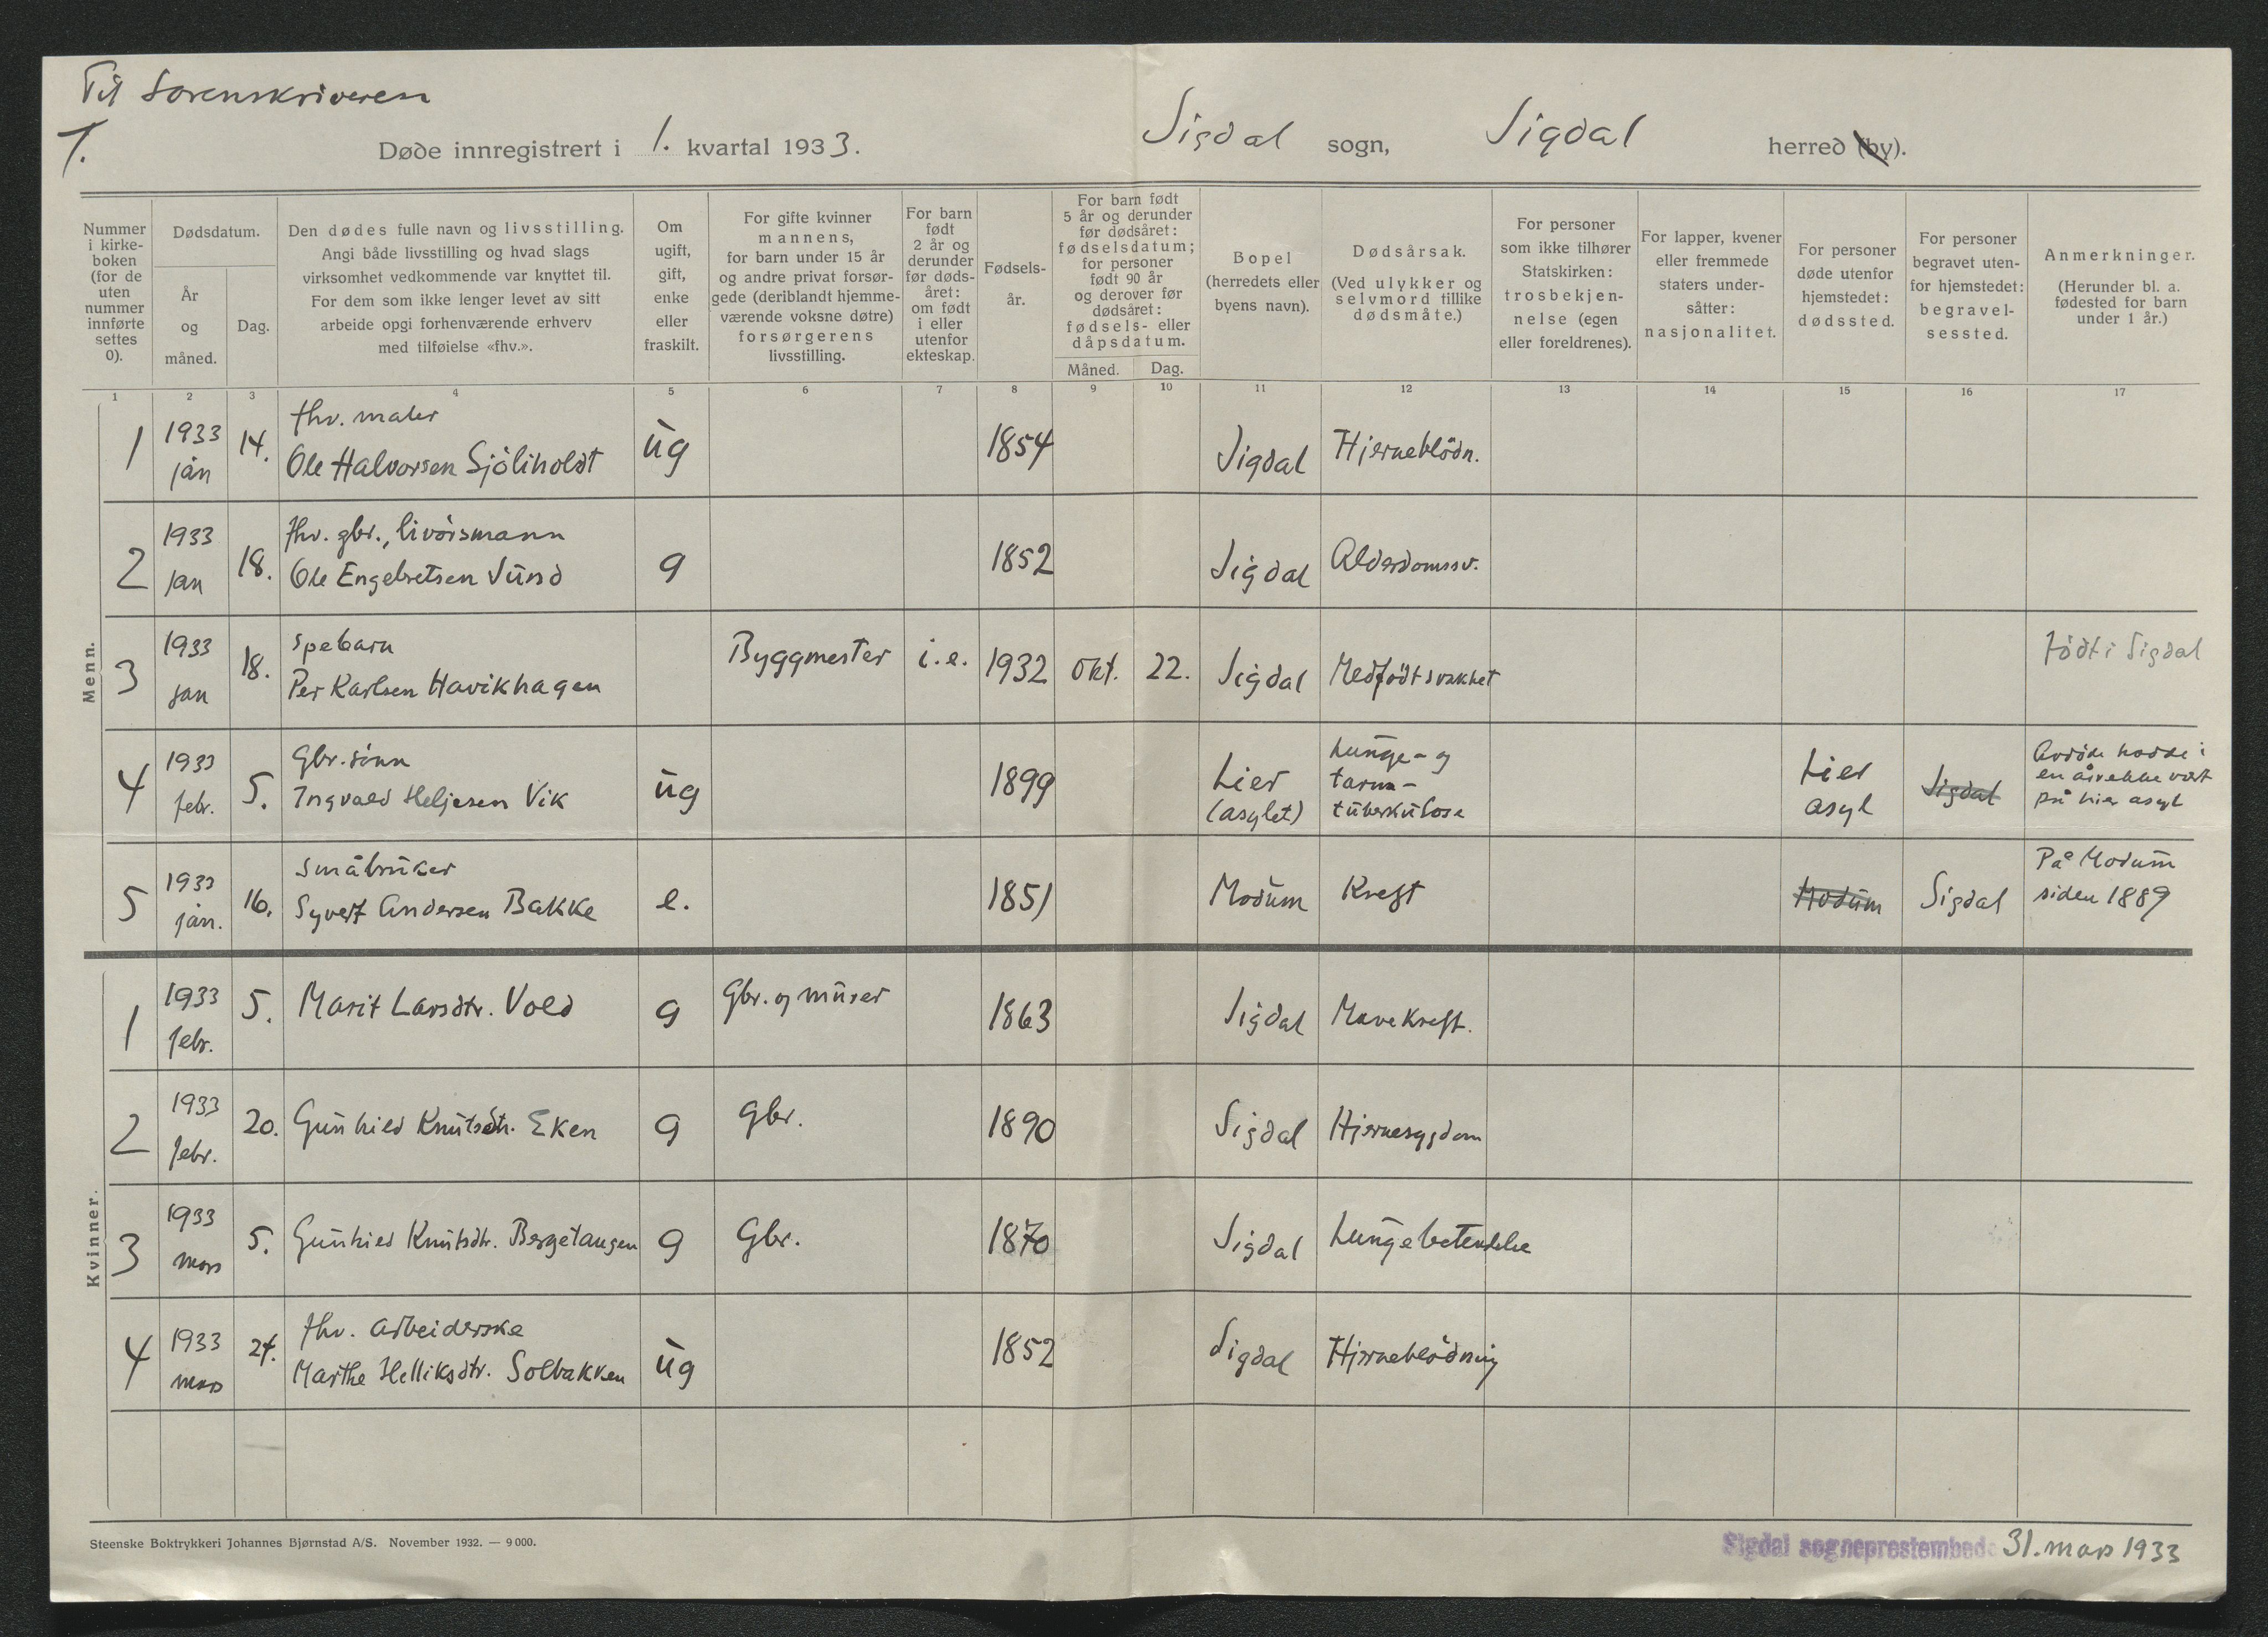 Til Sorenskriveren
1.
Døde innregistrert i 1. kvartal 1933.
Sigdal sogn, Sigdal herred (by).
Nummer i kirke-boken (for de uten nummer innførte settes 0).
Dødsdatum.
År og måned.
Dag.
Den dødes fulle navn og livsstilling.
Angi både livsstilling og hvad slags
virksomhet vedkommende var knyttet til.
For dem som ikke lenger levet av sitt
arbeide opgi forhenværende erhverv
med tilføielse «fhv.».
Om ugift, gift, enke eller fraskilt.
For gifte kvinner
mannens,
for barn under 15 år
og andre privat forsør-
gede (deriblandt hjemme-
værende voksne døtre)
forsørgerens
livsstilling.
For barn født 2 år og derunder før døds-året: om født i eller utenfor ekteskap.
Fødsels-
år.
For barn født
5 år og derunder
før dødsåret:
fødselsdatum;
for personer
født 90 år
og derover før
dødsåret:
fødsels- eller
dåpsdatum.
Måned. Dag.
Bopel
(herredets eller
byens navn).
Dødsårsak.
(Ved ulykker og
selvmord tillike
dødsmåte.)
For personer
som ikke tilhører
Statskirken:
trosbekjen-
nelse (egen
eller foreldrenes).
For lapper, kvener
eller fremmede
staters under-
såtter:
nasjonalitet.
For personer
døde utenfor
hjemstedet:
dødssted.
For personer
begravet uten-
for hjemstedet:
begravel-
sessted.
Anmerkninger.
(Herunder bl. a.
fødested for barn
under 1 år.)
1 2 3 4 5 6 7 8 9 10 11 12 13 14 15 16 17
Menn.
1 1933 jan 14. fhv. maler
Ole Halvorsen Sjöliholdt ug 1854 Sigdal Hjerneblödn.
2 1933 jan 18. fhv. gbr., livörsmann
Ole Engebretsen Lund g 1852 Sigdal Alderdomssv.
3 1933 jan 18. Spebarn
Per Karlsen Havikhagen Byggmester i.e. 1932 okt. 22. Sigdal Medfödt svakhet Födt i Sigdal
4 1933 febr. 5. Gbr.sönn
Ingvald Heljesen Vik ug 1899 Lier
(asylet) Lunge- og
tarm-
tuberkulose Lier
asyl Sigdal Avdöde hadde i
en årrekke vært
på Lier asyl
5 1933 jan. 16. Småbruker
Syvert Andersen Bakke e. 1851 Modum Kreft Modum Sigdal På Modum
siden 1889
Kvinner.
1 1933 febr. 5. Marit Larsdtr. Vold g Gbr. og murer 1863 Sigdal Mavekreft.
2 1933 febr. 20. Gunhild Knutsdtr. Eken g Gbr. 1890 Sigdal Hjernesygdom
3 1933 mars 5. Gunhild Knutsdtr. Bergetangen g Gbr. 1870 Sigdal Lungebetendelse
4 1933 mars 24. fhv. arbeiderske
Marthe Helliksdtr. Solbakken ug 1852 Sigdal Hjerneblödning
Steenske Boktrykkeri Johannes Bjørnstad A/S. November 1932. — 9 000.
Sigdal sogneprestembede 31. mars 1933